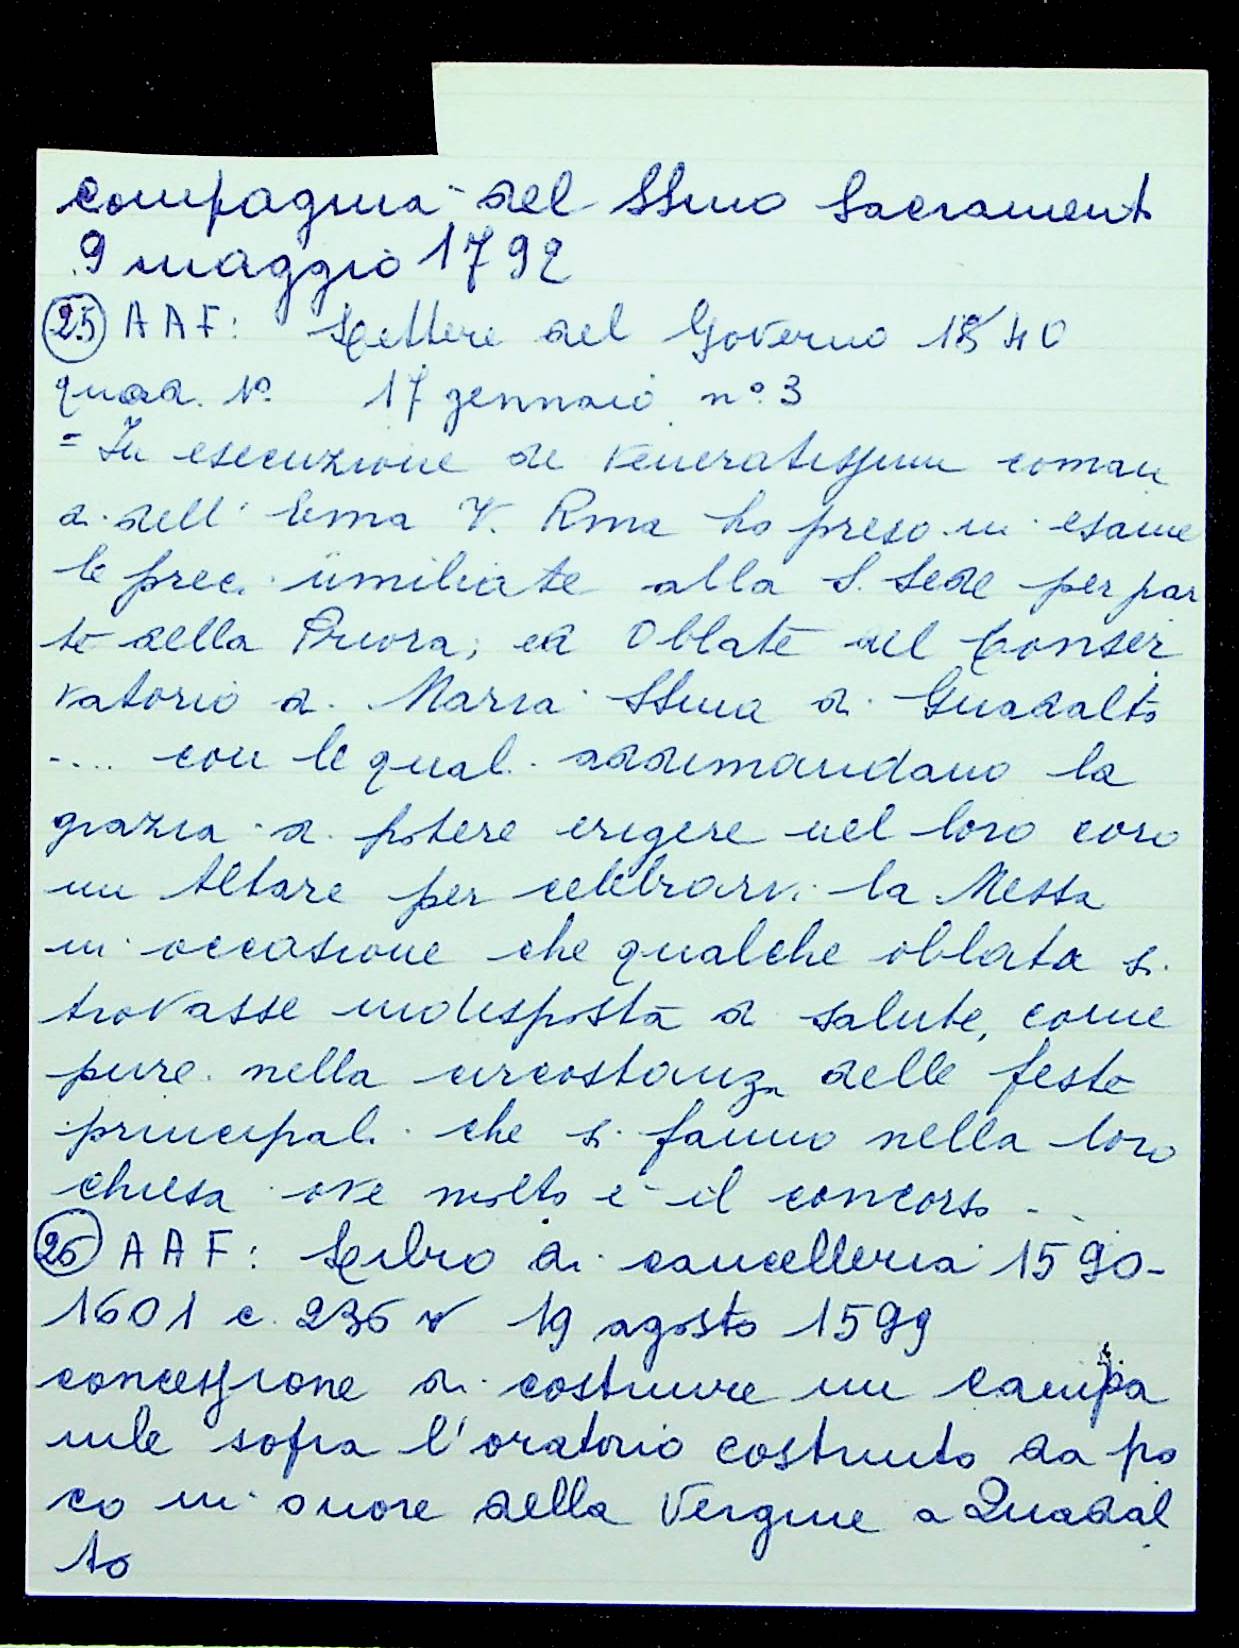 compagnia del SSmo Sacrament
9 maggio 1792
25 AAF: Lettere del Governo 1840
quad. 1° 17 gennaio n° 3
= In esecuzione de veneratissimi coman
di dell' Ema V. Rma ho preso in esame
le preci umiliate alla S. Sede per par
te della Priora, ed Oblate del Conser
vatorio di Maria SSma di Quadalto
.... con le quali addimandano la
grazia di potere erigere nel loro coro
un Altare per celebrarvi la Messa
in occasione che qualche oblata si
trovasse indisposta di salute, come
pure nella circostanza delle feste
principali che si fanno nella loro
chiesa ove molto è il concorso ...
26 AAF: Libro di cancelleria 1590-
1601 c. 236 v 19 agosto 1599
concessione di costruire un campa
nile sopra l'oratorio costruito da po
co in onore della Vergine a Quadal
to